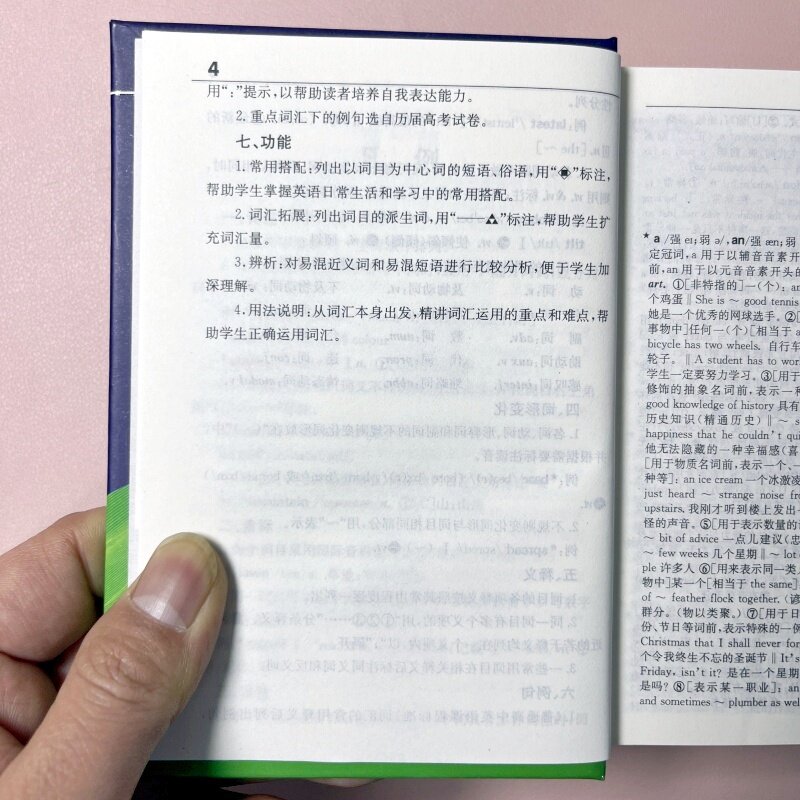 4
用“:”提示,以帮助读者培养自我表达能力。
2. 重点词汇下的例句选自历届高考试卷。
七、功能
1. 常用搭配:列出以词目为中心词的短语、俗语,用“◈”标注,
帮助学生掌握英语日常生活和学习中的常用搭配。
2. 词汇拓展:列出词目的派生词,用“——▲”标注,帮助学生扩
充词汇量。
3. 辨析:对易混近义词和易混短语进行比较分析,便于学生加
深理解。
4. 用法说明:从词汇本身出发,精讲词汇运用的重点和难点,帮
助学生正确运用词汇。
*a /强 eɪ; 弱 ə/, an/强 æn; 弱
定冠词,a 用于以辅音音素开
前,an 用于以元音音素开头的
art. ①[非特指的]一(个): an
个鸡蛋‖She is ~ good tennis
她是一个优秀的网球选手。②[
事物中]任何一(个)[相当于 a
bicycle has two wheels. 自行车
轮子。‖A student has to wor
学生一定要努力学习。③[用于
修饰的抽象名词前,表示一种
good knowledge of history 具有
历史知识(精通历史)‖~ s
happiness that he couldn't qui
他无法隐藏的一种幸福感(喜
[用于物质名词前,表示一个、一
种等]: an ice cream 一个冰激凌
just heard ~ strange noise fro
upstairs. 我刚才听到楼上发出一
怪的声音。⑤[用于表示数量的
~ bit of advice 一点儿建议(忠
~ few weeks 几个星期‖~ lot
ple 许多人 ⑥[用来表示同一类
物中]某一个[相当于 the same]
of ~ feather flock together. (谚
群分。(物以类聚。) ⑦[用于日
份、节日等词前,表示特殊的一
Christmas that I shall never for
个令我终生不忘的圣诞节‖It's
Friday, isn't it? 是在一个星期
是吗? ⑧[表示某一职业]: an
and sometimes ~ plumber as wel